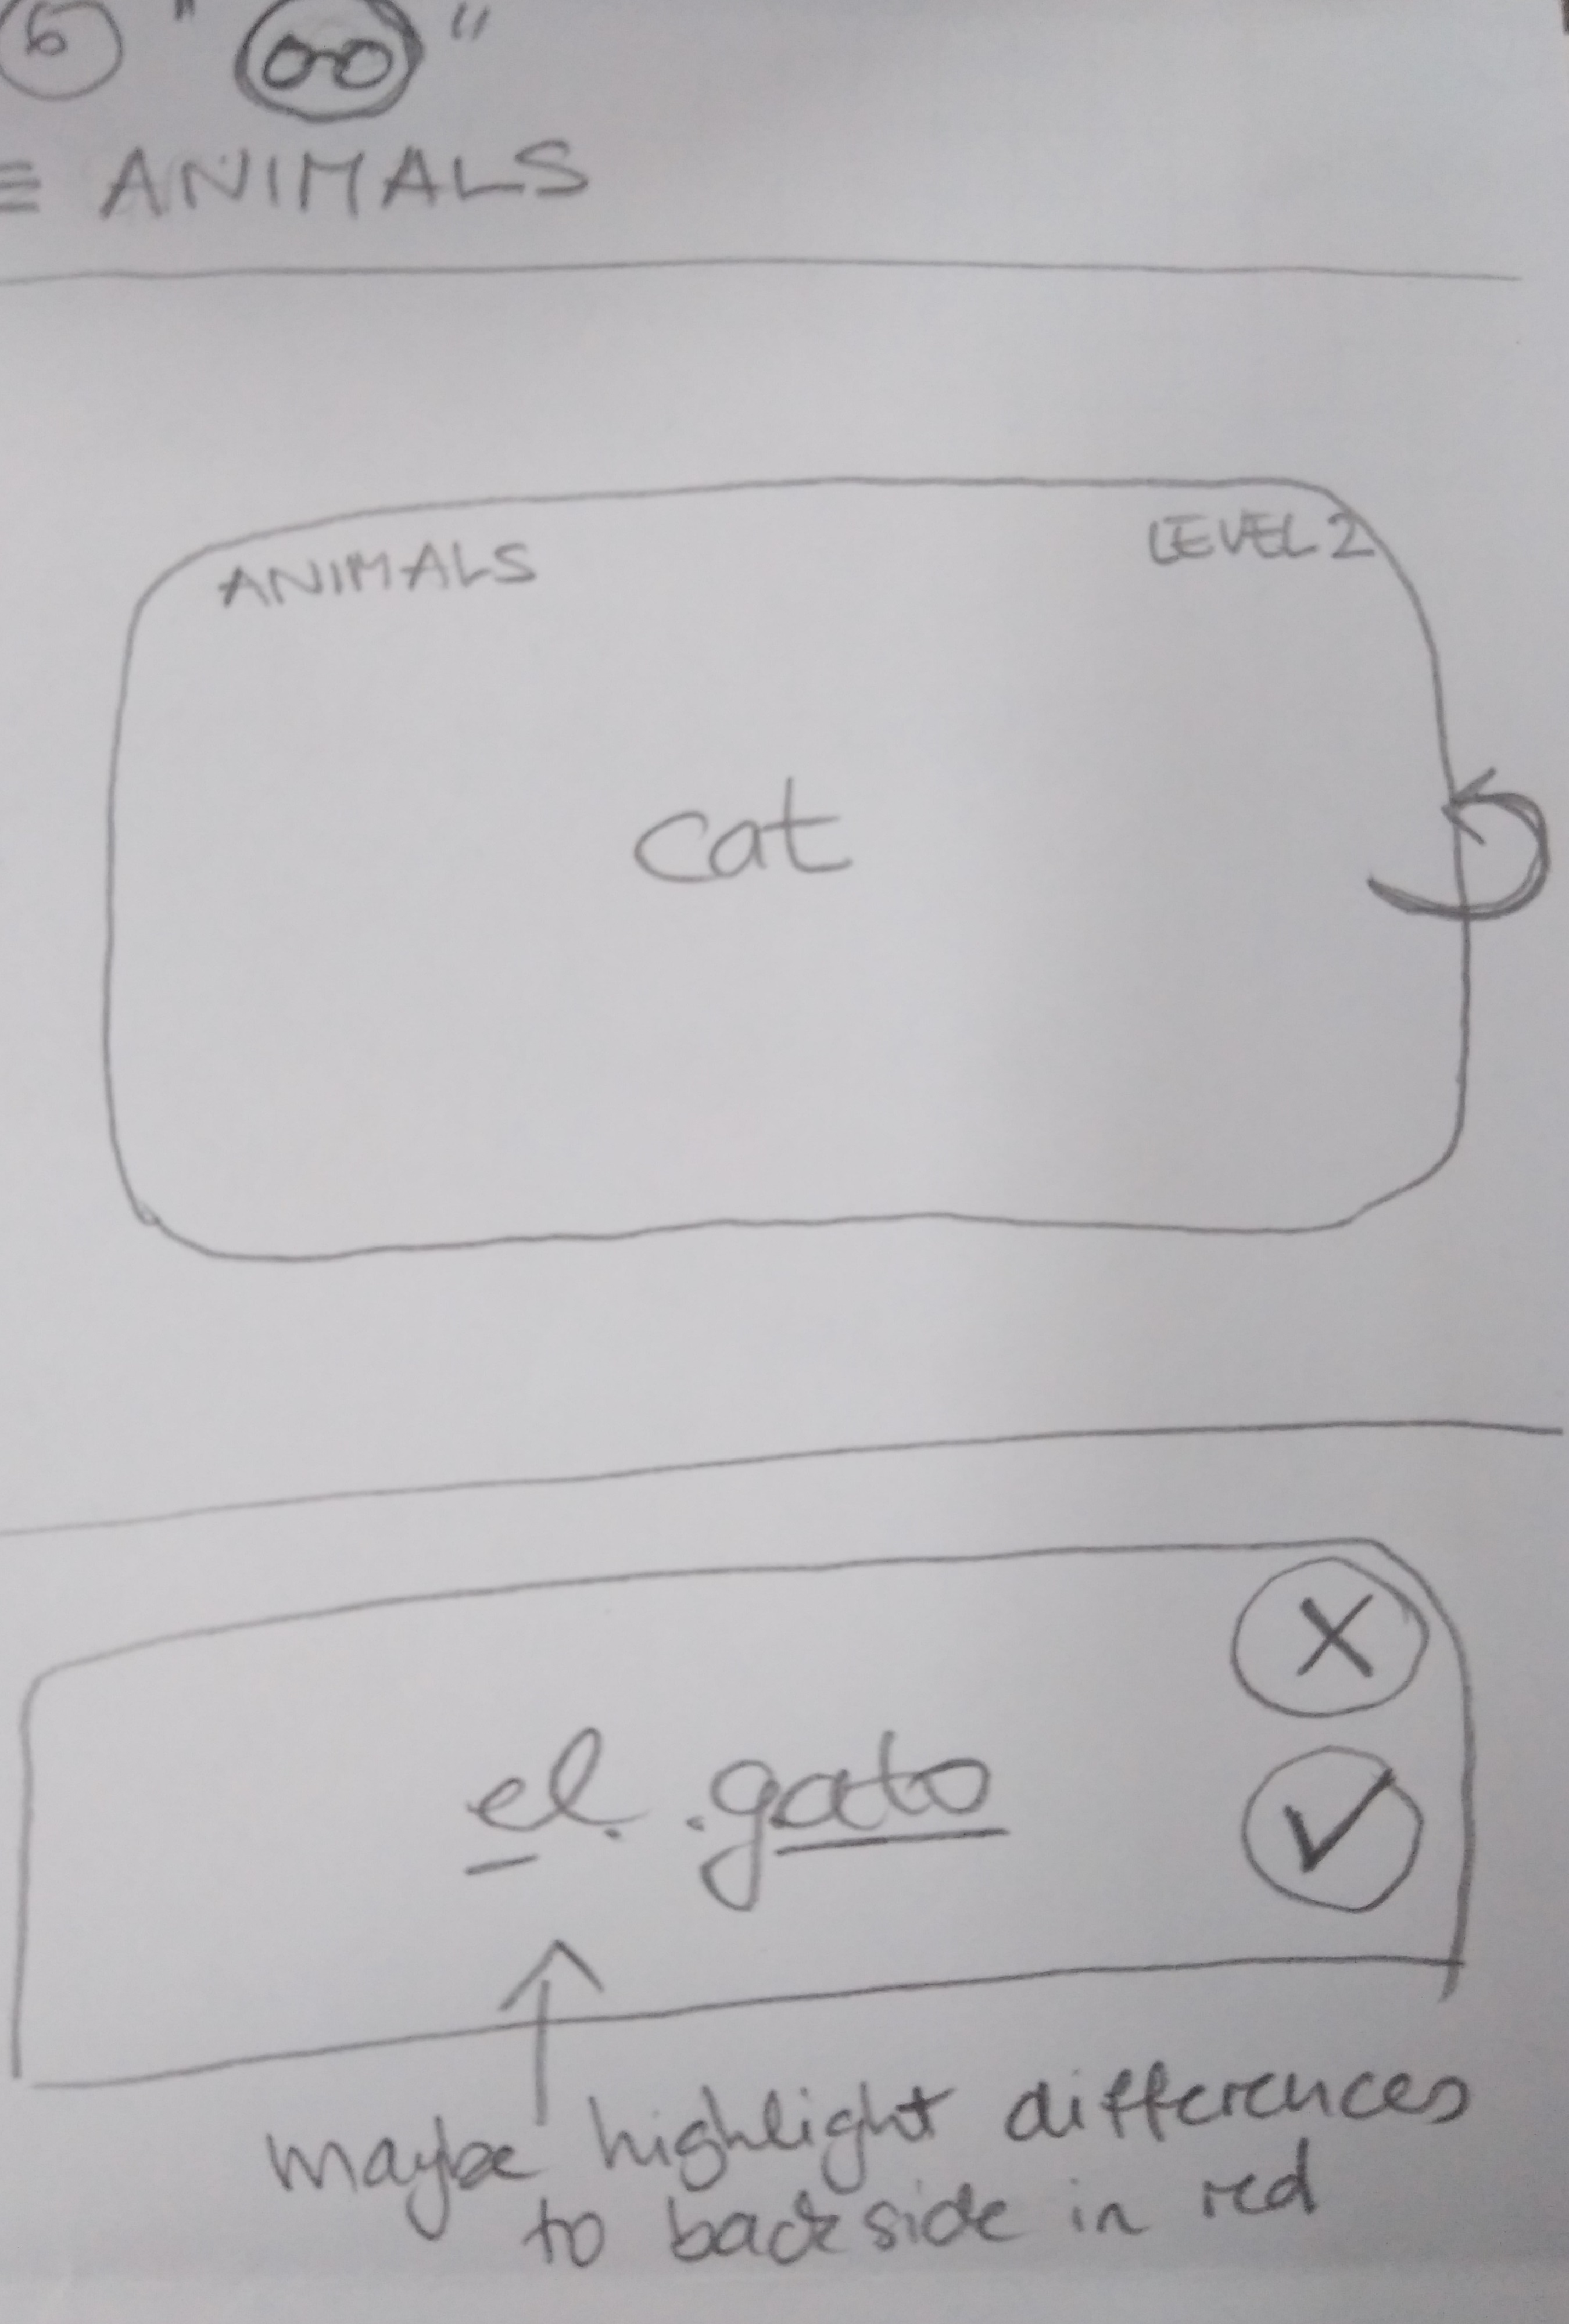 6 " "
ANIMALS
ANIMALS LEVEL 2
cat
el gato
maybe highlight differences
to backside in red